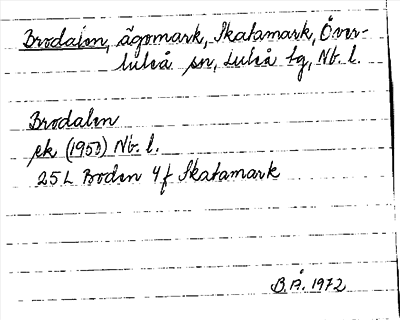 Brodalen, ägomark, Skatamark, Över-
luleå sn, Luleå tg, Nb. l.
Brodalen
ek (1950) Nb. l.
25L Boden 4f Skatamark
B.Å. 1972